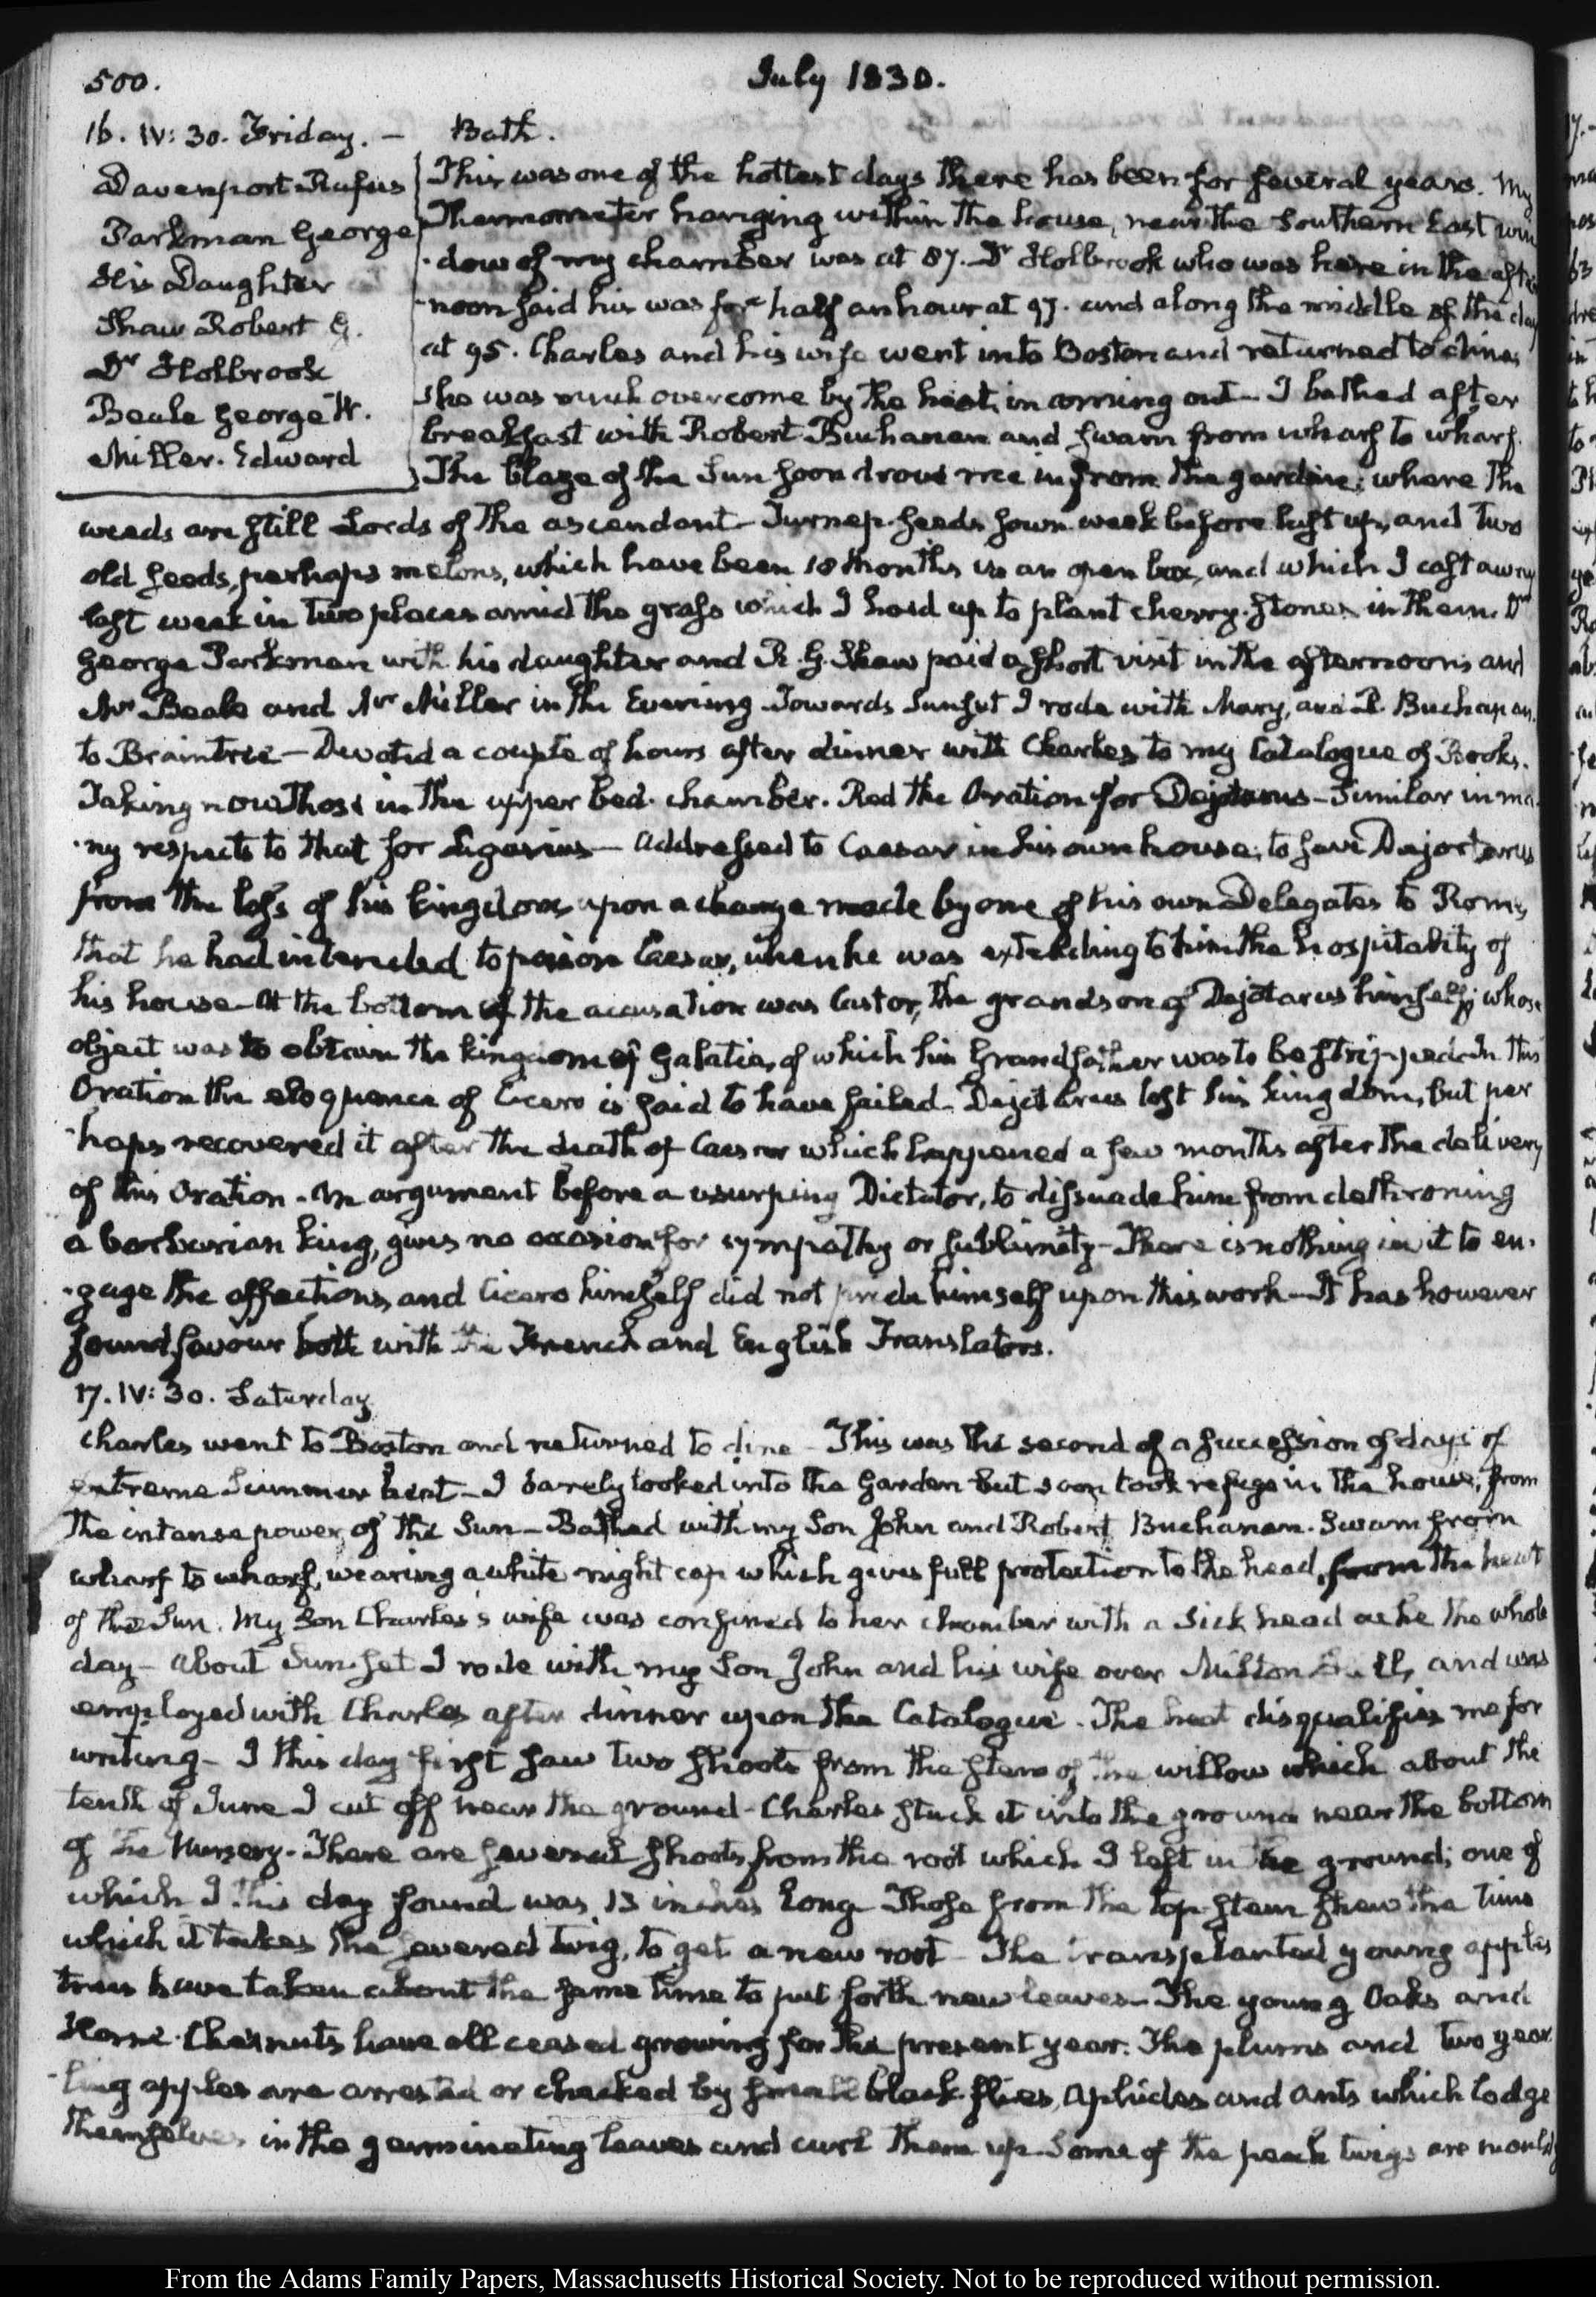 500.
July 1830.
16. IV: 30. Friday. — Bath.
Davenport Rufus
Parkman George
His Daughter
Shaw Robert G.
Dr Holbrook
Beale George W.
Miller. Edward
This was one of the hottest days there has been for several years. My
Thermometer hanging within the house, near the Southern East win
-dow of my chamber was at 87. Dr Holbrook who was here in the after
-noon said his was for half an hour at 97. and along the middle of the day
at 95. Charles and his wife went into Boston and returned to dine,
she was much overcome by the heat, in coming out — I bathed after
breakfast with Robert Buchanan and swam from wharf to wharf.
The blaze of the Sun soon drove me in from the garden; where the
weeds are still Lords of the ascendant — Turnep. seeds sown week before last up, and two
old seeds, perhaps melons, which have been 18 months in an open box, and which I cast away
last week in two places amid the grass which I hoed up to plant cherry-stones in them. Dr
George Parkman with his daughter and R. G. Shaw paid a short visit in the afternoon; and
Mr Beale and Mr Miller in the Evening. Towards Sunset I rode with Mary, and R. Buchanan,
to Braintree — Devoted a couple of hours after dinner with Charles to my Catalogue of Books.
Taking now those in the upper bed-chamber. Red the Oration for Dejotarus — Similar in ma
-ny respects to that for Ligarius — addressed to Caesar in his own house; to save Dejotarus
from the loss of his kingdom, upon a charge made by one of his own Delegates to Rome,
that he had intended to poison Caesar, when he was extending to him the hospitality of
his house — At the bottom of the accusation was Castor, the grandson of Dejotarus himself; whose
object was to obtain the kingdom of Galatia, of which his Grandfather was to be stripped. In this
Oration the eloquence of Cicero is said to have failed — Dejotarus lost his kingdom, but per
-haps recovered it after the death of Caesar which happened a few months after the delivery
of this Oration. An argument before a usurping Dictator, to dissuade him from dethroning
a barbarian king, gives no occasion for sympathy or sublimity — There is nothing in it to en-
-gage the affections, and Cicero himself did not pride himself upon this work — It has however
found favour both with the French and English Translators.
17. IV: 30. Saturday
Charles went to Boston and returned to dine — This was the second of a succession of days of
extreme Summer heat — I barely looked into the Garden but soon took refuge in the house, from
the intense power of the Sun — Bathed with my Son John and Robert Buchanan. Swam from
wharf to wharf, wearing a white night cap which gives full protection to the head, from the heat
of the Sun. My Son Charles's wife was confined to her chamber with a sick head ache the whole
day — About Sunset I rode with my Son John and his wife over Milton Hill, and was
employed with Charles after dinner upon the Catalogue. The heat disqualifies me for
writing — I this day first saw two shoots from the stem of the willow which about the
tenth of June I cut off near the ground — Charles stuck it into the ground near the bottom
of the Nursery. There are several shoots from the root which I left in the ground; one of
which I this day found was 13 inches long. Those from the top stem shew the time
which it takes the severed twig, to get a new root — The transplanted young apple
trees have taken about the same time to put forth new leaves — The young Oaks and
Horse-Chesnuts have all ceased growing for the present year. The plums and two year
-ling apples are arrested or checked by small black flies, aphides and ants which lodge
themselves in the germinating leaves and curl them up. Some of the peach twigs are mouldy
From the Adams Family Papers, Massachusetts Historical Society. Not to be reproduced without permission.